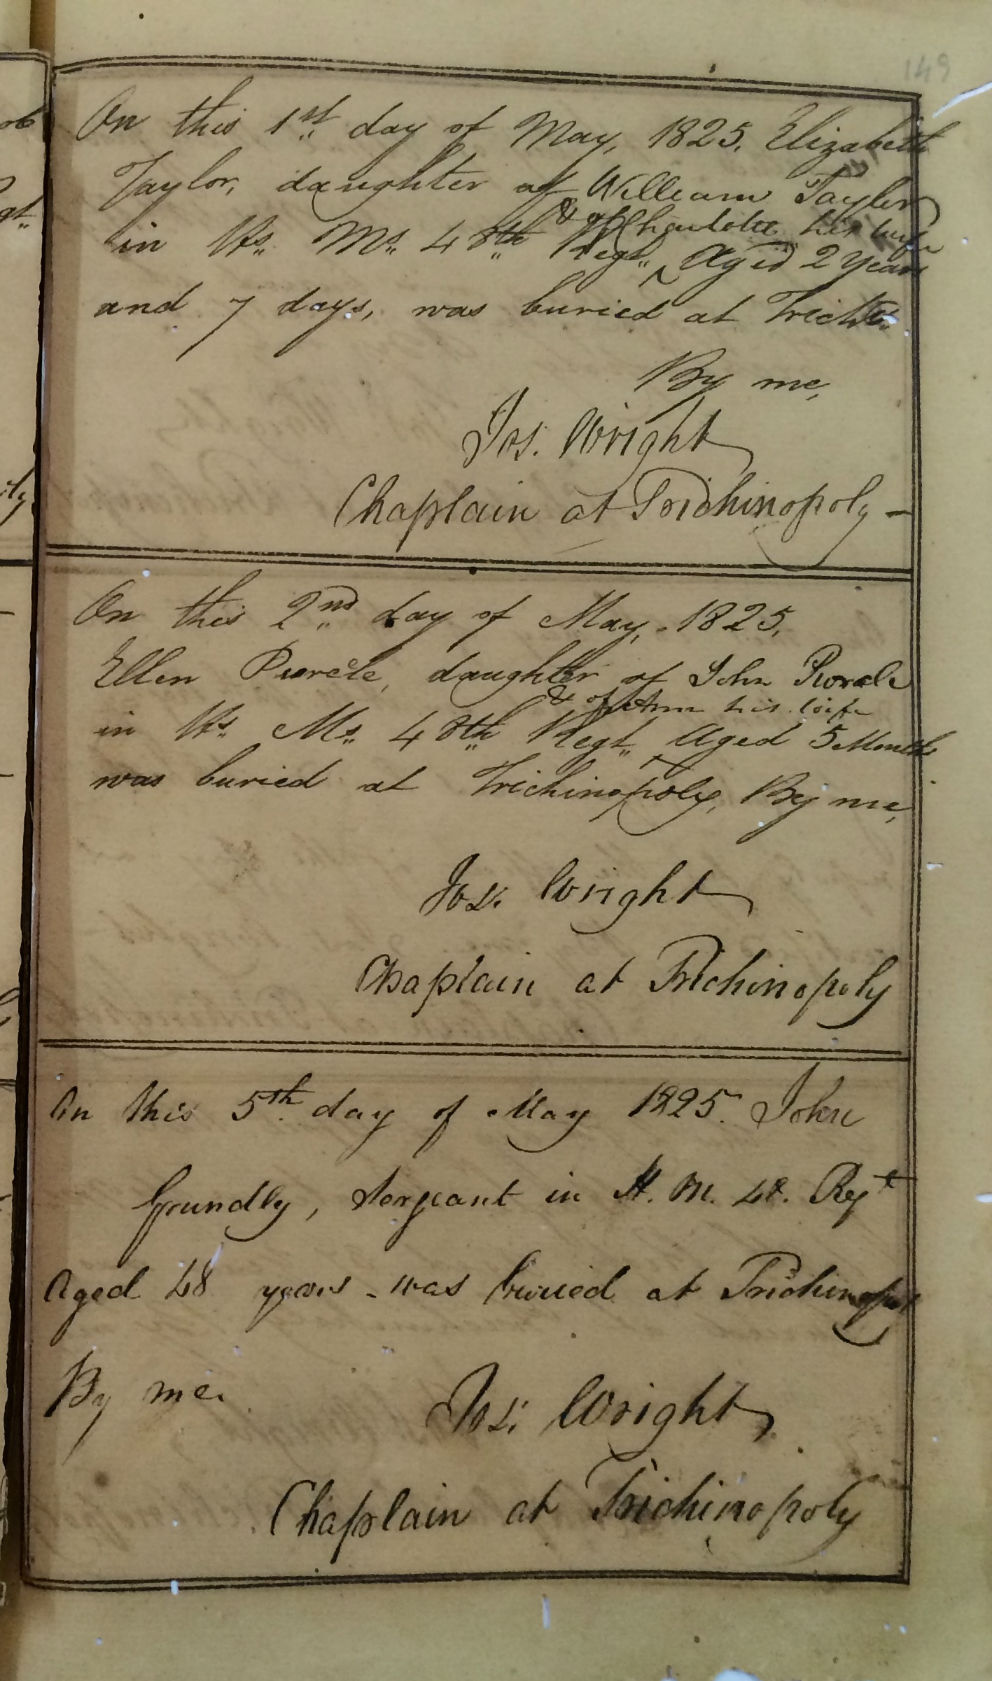 149
On this 1st day of May, 1825. Elizabeth
Taylor, daughter of William Taylor
& of Charlotte his wife
in Hs. Ms. 48th Regt. ^ Aged 2 Years
and 7 days, was buried at Trich
By me,
Jos. Wright
Chaplain at Trichinopoly -
On this 2nd day of May, 1825.
Ellen daughter of John
& of Ann his wife
in Hs. Ms. 48th Regt. ^ Aged 5 Months
was buried at Trichinopoly, By me,
Jos. Wright
Chaplain at Trichinopoly
On this 5th day of May 1825. John
Grundly, Sergeant in H. M. 48. Regt
Aged 48 years - was buried at Trichinopol
By me.
Jos. Wright
Chaplain at Trichinopoly